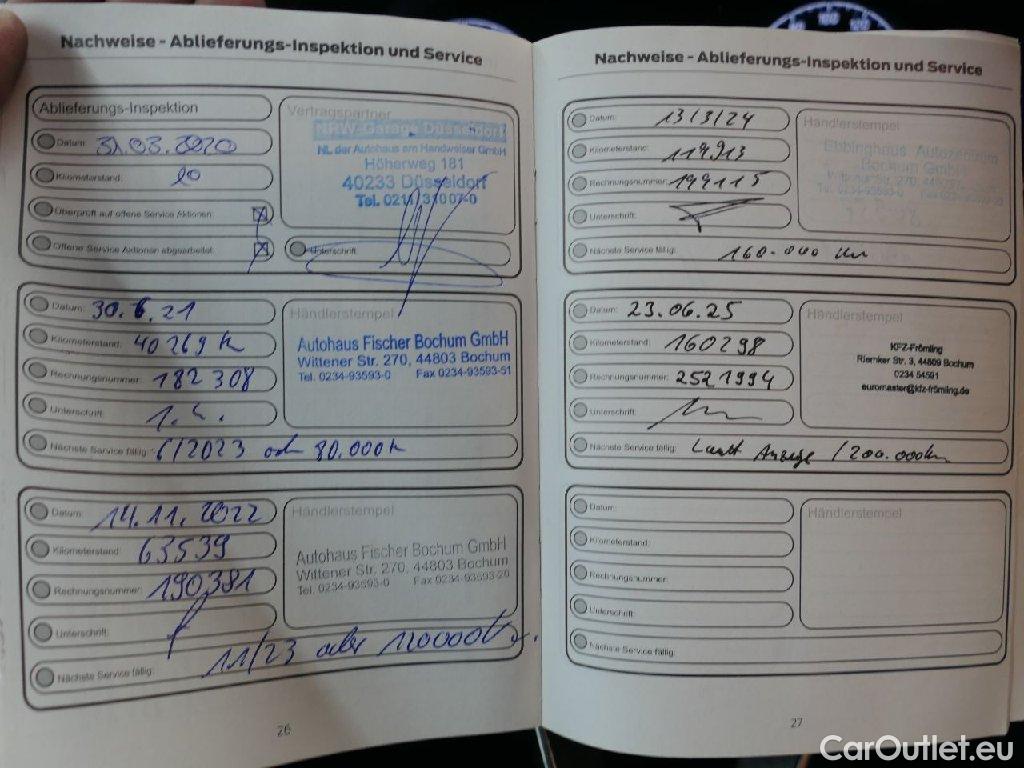 Nachweise - Ablieferungs-Inspektion und Service
Ablieferungs-Inspektion
Datum: 31.03.2020
Kilometerstand:
Überprüft auf offene Service Aktionen:
Offene Service Aktionen abgearbeitet:
Vertragspartner
NRW-Garage Düsseldorf
NL der Autohaus am Handweiser GmbH
Höherweg 181
40233 Düsseldorf
Unterschrift:
Datum: 30.6.21
Kilometerstand: 40269 k
Rechnungsnummer: 182 308
Unterschrift:
Nächste Service fällig: 6/2023 od 80.000k
Händlerstempel
Autohaus Fischer Bochum GmbH
Wittener Str. 270, 44803 Bochum
Tel. 0234-93593-0 Fax 0234-93593-51
Datum: 14.11.2022
Kilometerstand: 63539
Rechnungsnummer: 190381
Unterschrift:
Nächste Service fällig: 11/23 oder 120000k
Händlerstempel
Autohaus Fischer Bochum GmbH
Wittener Str. 270, 44803 Bochum
Tel. 0234-93593-0 Fax 0234-93593-20
26
Nachweise - Ablieferungs-Inspektion und Service
Datum: 13/3/24
Kilometerstand: 119913
Rechnungsnummer: 199115
Unterschrift:
Nächste Service fällig: 160.000 km
Händlerstempel
Ebbinghaus Autozentrum
Bochum GmbH
Datum: 23.06.25
Kilometerstand: 160298
Rechnungsnummer: 2521994
Unterschrift:
Nächste Service fällig: Laut Anzeige /200.000km
Händlerstempel
KFZ-Frömling
Riemker Str. 3, 44809 Bochum
0234 54591
euromaster@kfz-frömling.de
Datum:
Kilometerstand:
Rechnungsnummer:
Unterschrift:
Nächste Service fällig:
Händlerstempel
27
CarOutlet.eu